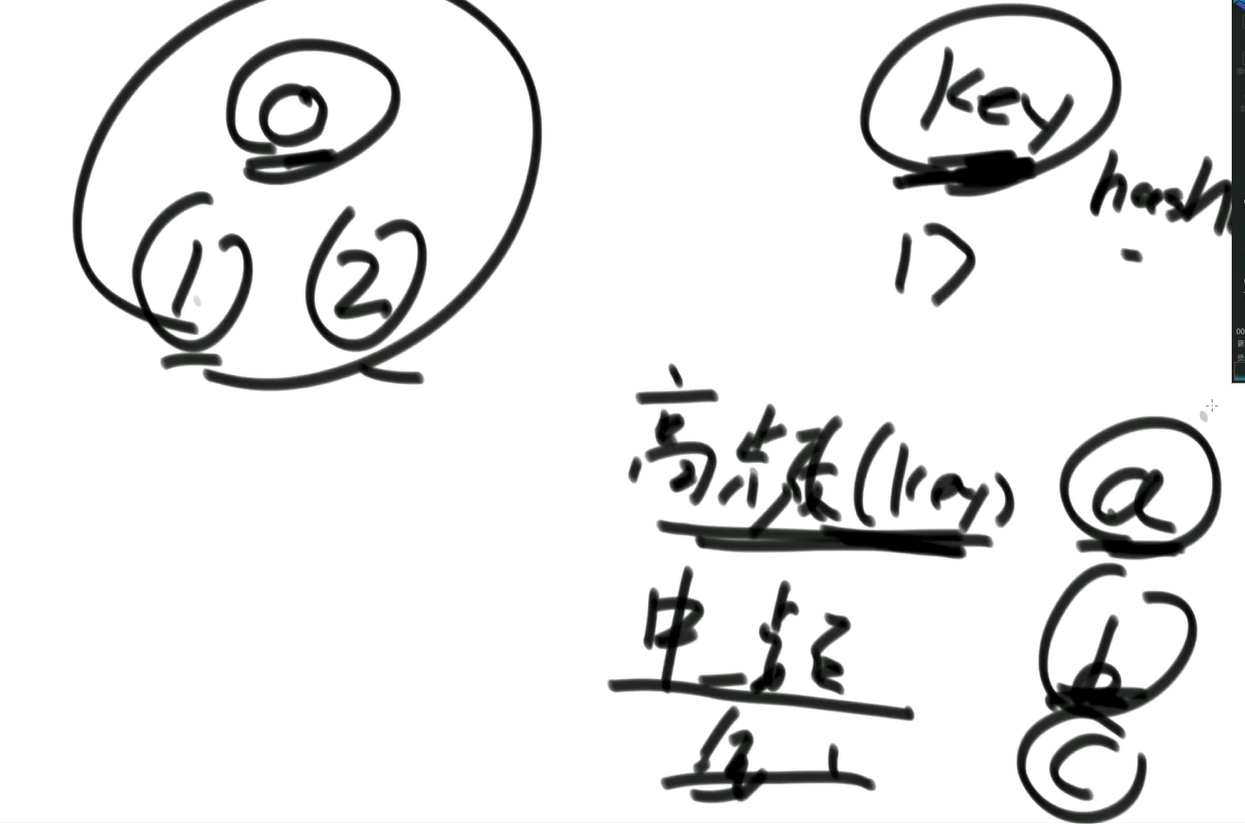 0
1 2
key
hash
1>
高频(key) a
中频 b
c